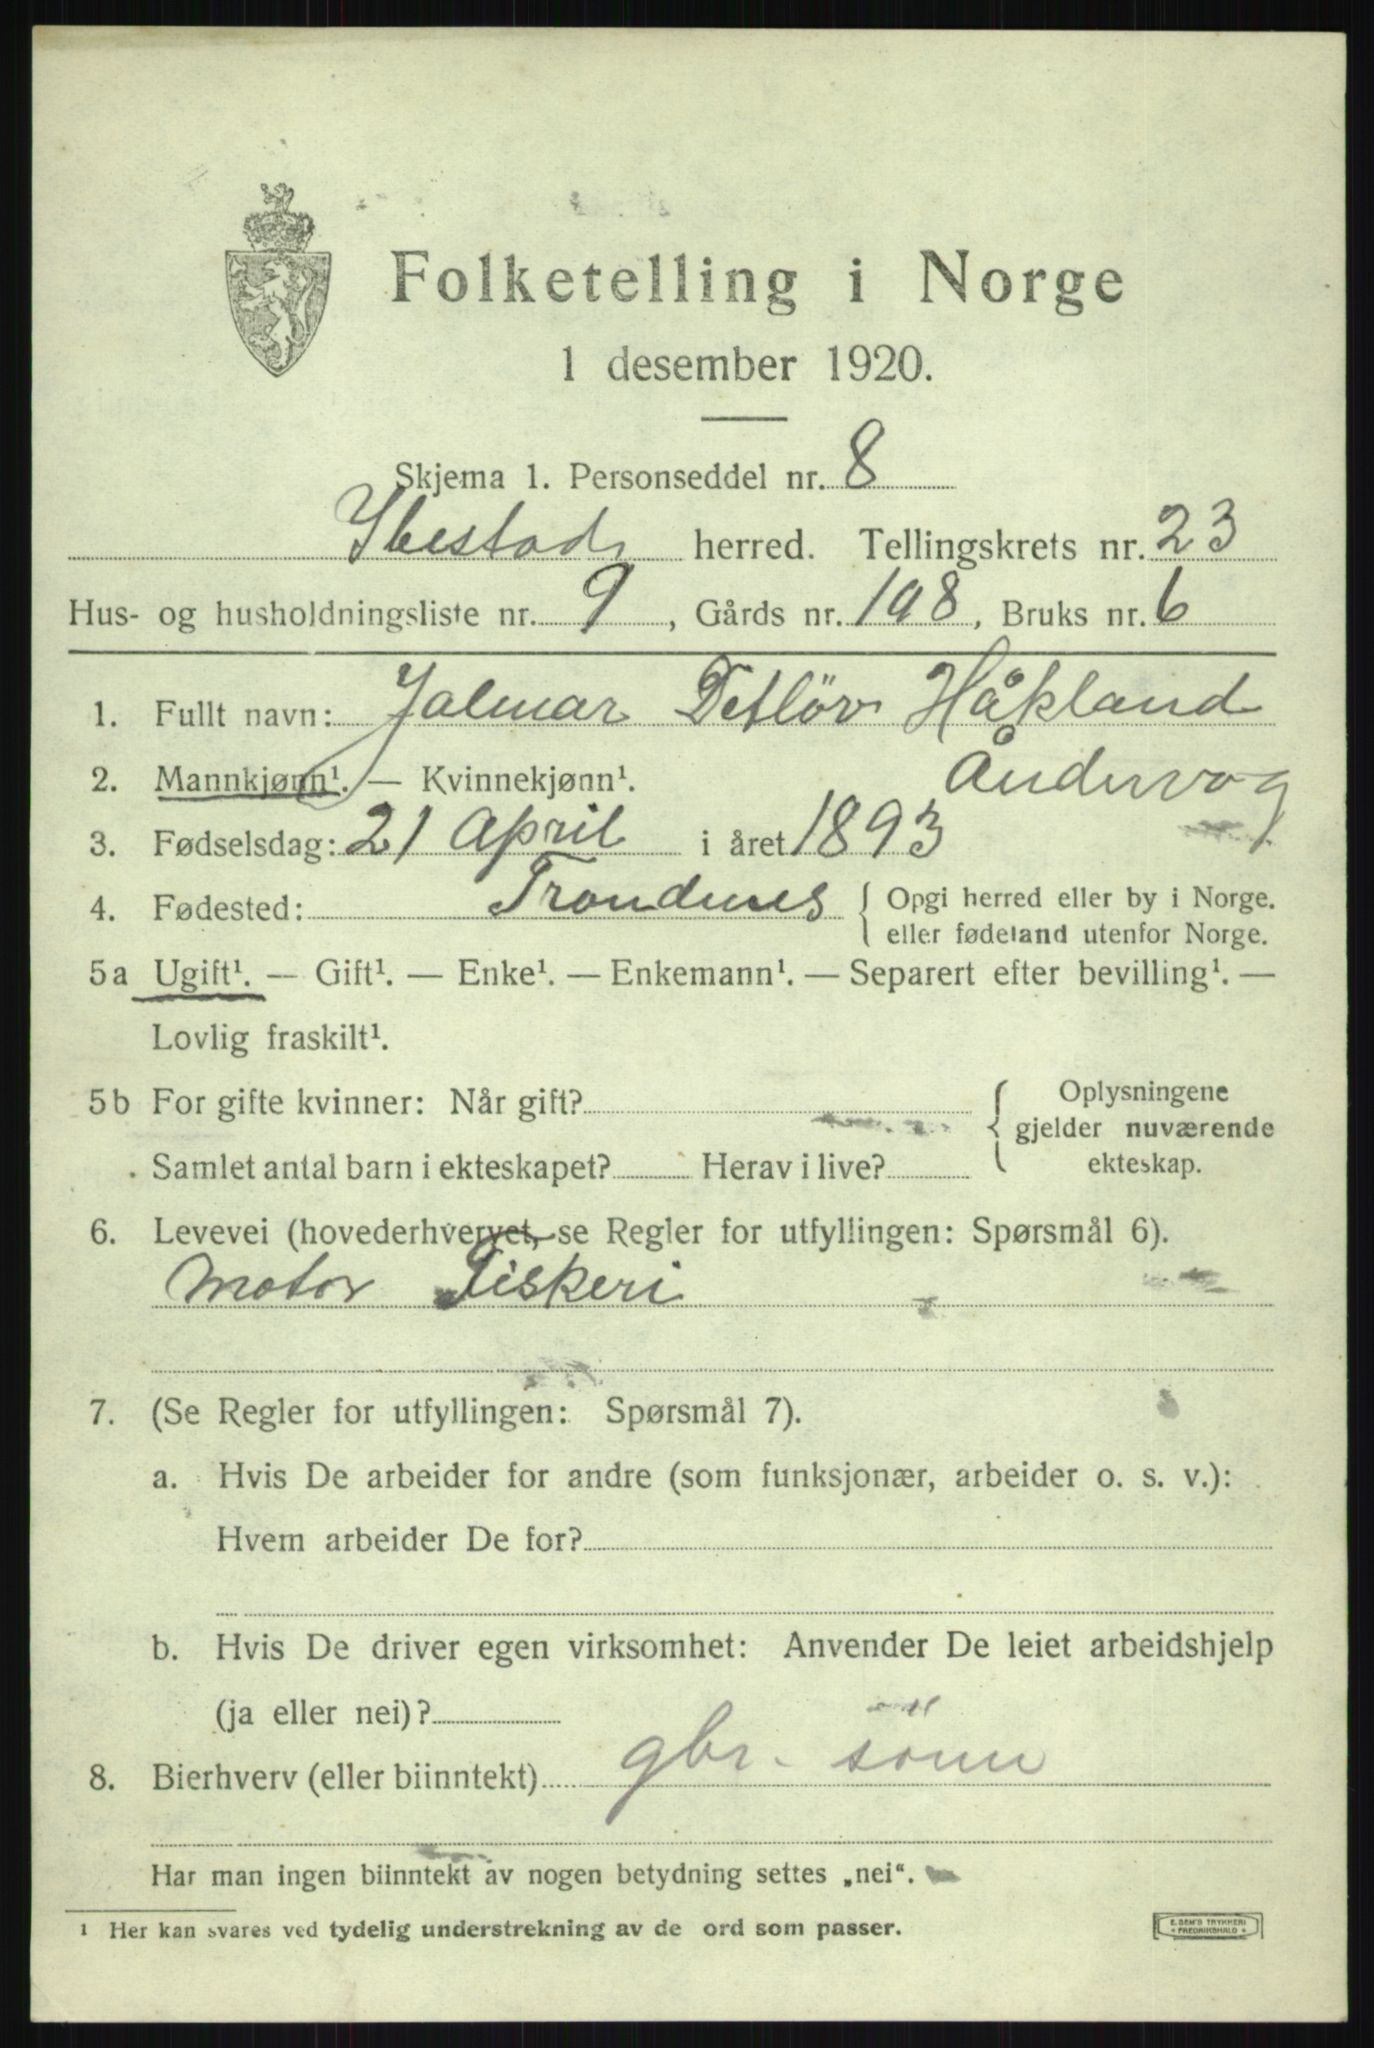 Folketelling i Norge
1 desember 1920.
Skjema 1. Personseddel nr. 8
Ibestad herred. Tellingskrets nr. 23
Hus- og husholdningsliste nr. 9, Gårds nr. 198, Bruks nr. 6
1. Fullt navn: Jalmar Detlöv Håkland
Åndervåg
2. Mannkjønn¹. — Kvinnekjønn¹.
3. Fødselsdag: 21 April i året 1893
4. Fødested: Trondenes { Opgi herred eller by i Norge.
eller fødeland utenfor Norge.
5a Ugift¹. — Gift¹. — Enke¹. — Enkemann¹. — Separert efter bevilling¹. —
Lovlig fraskilt¹.
5b For gifte kvinner: Når gift? { Oplysningene
gjelder nuværende
ekteskap.
Samlet antal barn i ekteskapet? Herav i live?
6. Levevei (hovederhvervet, se Regler for utfyllingen: Spørsmål 6).
Motor Fiskeri
7. (Se Regler for utfyllingen: Spørsmål 7).
a. Hvis De arbeider for andre (som funksjonær, arbeider o. s. v.):
Hvem arbeider De for?
b. Hvis De driver egen virksomhet: Anvender De leiet arbeidshjelp
(ja eller nei)?
8. Bierhverv (eller biinntekt) gbr. sönn
Har man ingen biinntekt av nogen betydning settes „nei“.
¹ Her kan svares ved tydelig understrekning av de ord som passer.
E. SEM'S TRYKKERI
FREDRIKSHALD